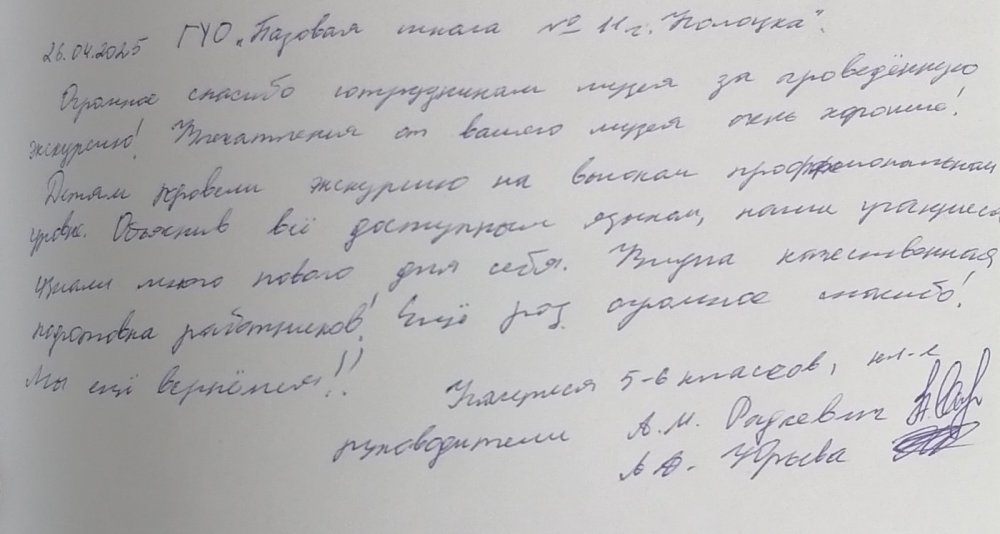 26.04.2025 ГУО „Базовая школа № 11 г. Полоцка".
Огромное спасибо сотрудникам музея за проведённую
экскурсию! Впечатления от вашего музея очень хорошие!
Детям провели экскурсию на высоком профессиональном
уровне. Объяснив всё доступным языком, наши учащиеся
узнали много нового для себя. Видна качественная
подготовка работников! Ещё раз огромное спасибо!
Мы ещё вернёмся!!
Учащиеся 5-6 классов, кл-е
руководители А.М. Радкевич
А.А. Юрьева